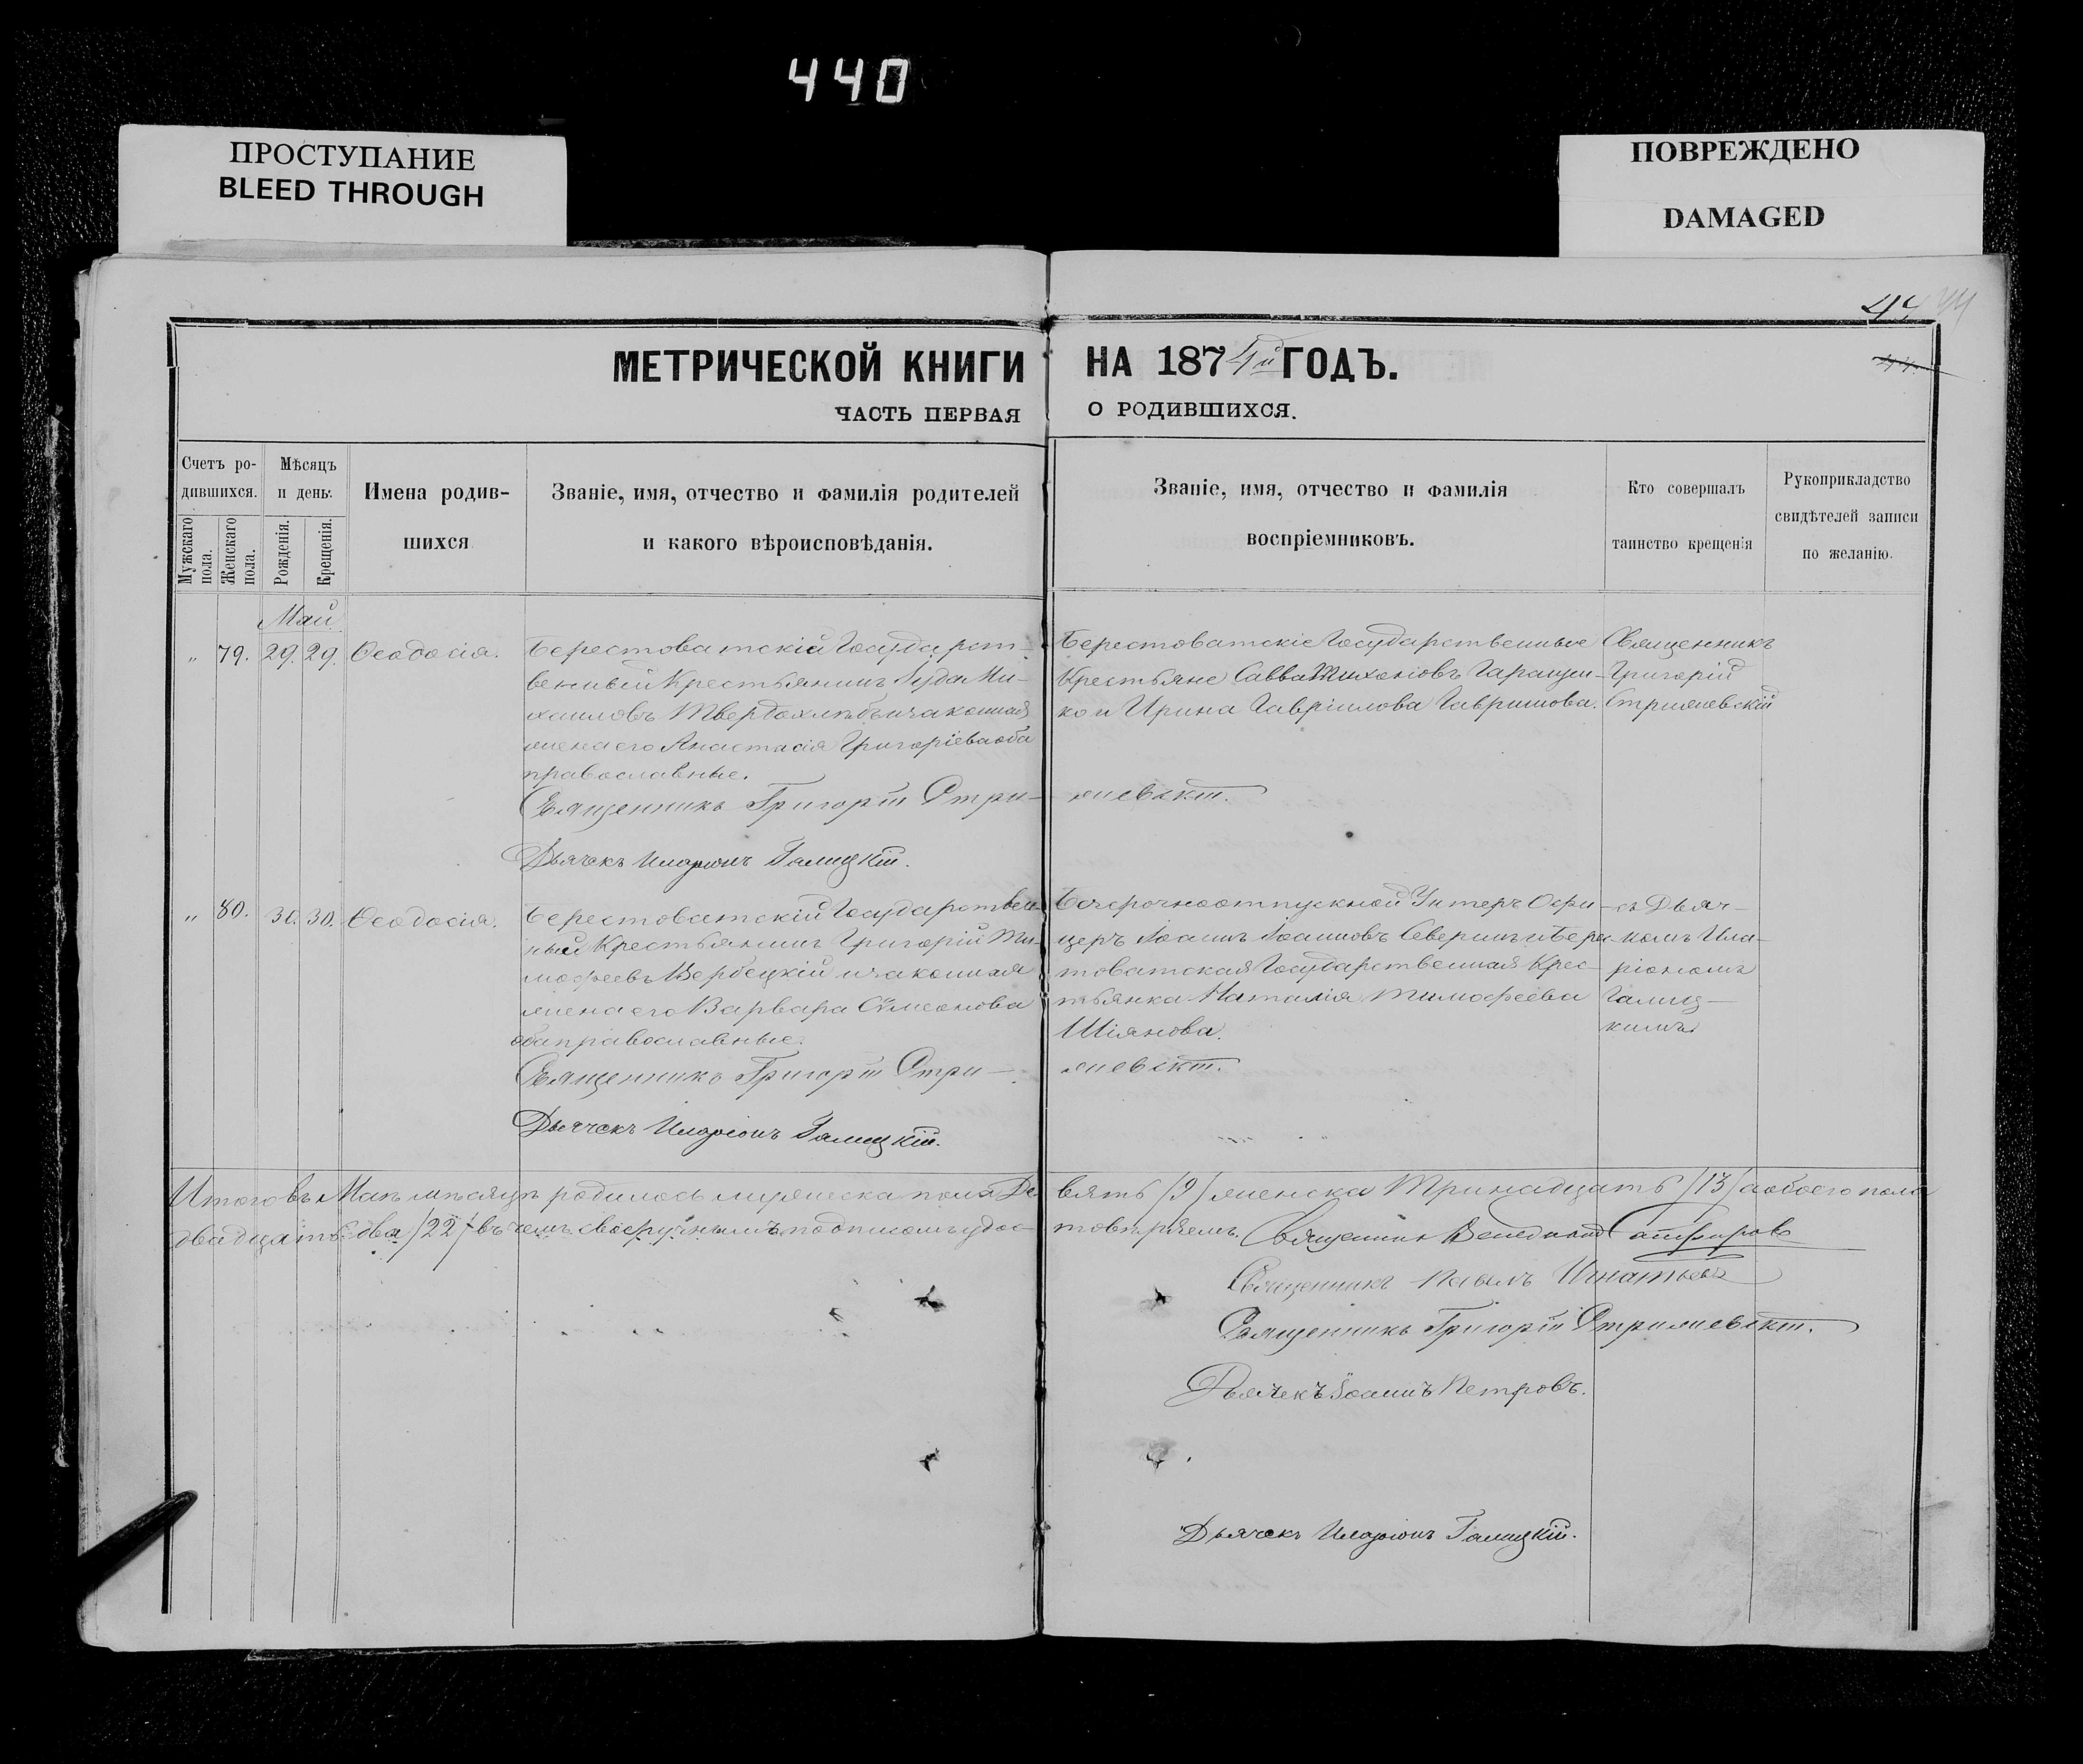 440
ПРОСТУПАНИЕ
BLEED THROUGH
ПОВРЕЖДЕНО
DAMAGED
44
МЕТРИЧЕСКОЙ КНИГИ НА 1874й ГОДЪ.
ЧАСТЬ ПЕРВАЯ О РОДИВШИХСЯ.
Счетъ ро-
дившихся.
Мужскаго пола.
Женскаго пола.
Мѣсяцъ
и день.
Рожденія.
Крещенія.
Имена родив-
шихся
Званіе, имя, отчество и фамилія родителей
и какого вѣроисповѣданія.
Званіе, имя, отчество и фамилія
воспріемниковъ.
Кто совершалъ
таинство крещенія
Рукоприкладство
свидѣтелей записи
по желанію.
Май
„ 79. 29. 29. Ѳеодосія.
Берестоватскій Государст-
венный Крестьянинъ Іуда Ми-
хаиловъ Твердохлѣбъ и законная
жена его Анастасія Григоріева оба
православные.
Священникъ Григорій Стри-жиевскій.
Дьячекъ Иларіонъ Галицкій.
Берестоватскіе Государственные
Крестьяне Савва Тихоновъ Гаращен-
ко и Ирина Гавріилова Гавришова.
Священникъ
Григорій
Стрижиевскій
„ 80. 30. 30. Ѳеодосія.
Берестоватскій Государствен-
ный Крестьянинъ Григорій Ти-
моѳеевъ Вербецкій и законная
жена его Варвара Сѵмеонова
оба православные.
Священникъ Григорій Стри-жиевскій.
Дьячекъ Иларіонъ Галицкій.
Безсрочноотпускной Унтеръ Офи-
церъ Іоаннъ Іоанновъ Северинъ и Берес-
товатская Государственная Крес-
тьянка Наталія Тимофеева
Шіянова.
съ Дьяч-
комъ Ила-
ріономъ
Галиц-
кимъ
Итого въ Маѣ мѣсяцѣ родилось мужеска пола Девять /9/ женска Тринадцать /13/ а обоего пола
двадцать два /22/ въ чемъ своеручнымъ подписомъ удостовѣряемъ. Священникъ
Священникъ Павелъ Игнатьевъ
Священникъ Григорій Стрижиевскій.
Дьячекъ Іоаннъ Петровъ.
Дьячекъ Иларіонъ Галицкій.